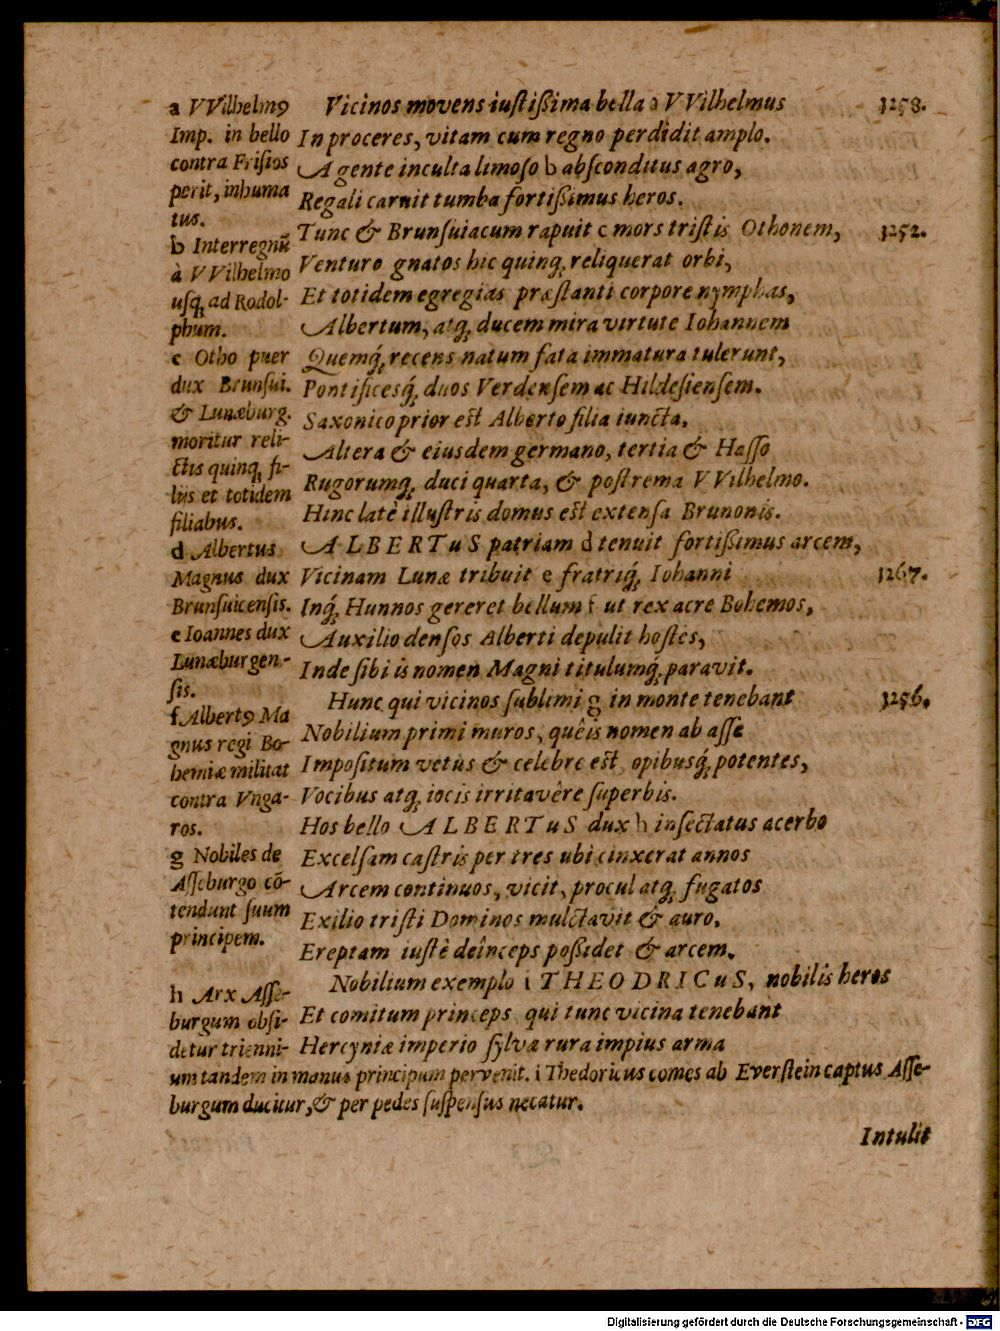 Vicinos movens iustißima bella a VVilhelmus 1258.
In proceres, vitam cum regno perdidit amplo.
Agente inculta limoso b absconditus agro,
Regali caruit tumba fortißimus heros.
Tunc & Brunsuiacum rapuit c mors tristis Othonem, 1252.
Venturo gnatos hic quinq; reliquerat orbi,
Et totidem egregias præstanti corpore nymphas,
Albertum, atq; ducem mira virtute Iohannem
Quemq́; recens natum fata immatura tulerunt,
Pontificesq́; duos Verdensem ac Hildesiensem.
Saxonico prior est Alberto filia iuncta,
Altera & eiusdem germano, tertia & Hasso
Rugorumq; duci quarta, & postrema VVilhelmo.
Hinc latè illustris domus est extensa Brunonis.
ALBERTuS patriam d tenuit fortißimus arcem,
Vicinam Lunæ tribuit e fratriq́; Iohanni 1267.
Inq́; Hunnos gereret bellum f ut rex acre Bohemos,
Auxilio densos Alberti depulit hostes,
Inde sibi is nomen Magni titulumq́; paravit.
Hunc qui vicinos sublimi g in monte tenebant 1256.
Nobilium primi muros, quêis nomen ab asse
Impositum vetus & celebre est, opibusq́; potentes,
Vocibus atq; iocis irritavêre superbis.
Hos bello ALBERTuS dux h insectatus acerbo
Excelsam castris per tres ubi cinxerat annos
Arcem continuos, vicit, procul atq; fugatos
Exilio tristi Dominos mulctavit & auro,
Ereptam iustè deînceps poßidet & arcem.
Nobilium exemplo i THEODRICuS, nobilis heros
Et comitum princeps qui tunc vicina tenebant
Hercyniæ imperio sylvæ rura impius arma
a VVilhelmꝰ
Imp. in bello
contra Frisios
perit, inhuma
tus.
b Interregnũ
à VVilhelmo
usq; ad Rodol-
phum.
c Otho puer
dux Brunsui.
& Lunæburg.
moritur reli-
ctis quinq; fi-
liis et totidem
filiabus.
d Albertus
Magnus dux
Brunsuicensis.
e Ioannes dux
Lunæburgen-
sis.
f Albertꝰ Ma
gnus regi Bo-
hemiæ militat
contra Vnga-
ros.
g Nobiles de
Asseburgo cõ-
tendunt suum
principem.
h Arx Asse-
burgum obsi-
detur trienni-
um tandem in manus principum pervenit. i Thedoricus comes ab Everstein captus Asse-
burgum ducitur, & per pedes suspensus necatur.
Intulit
Digitalisierung gefördert durch die Deutsche Forschungsgemeinschaft - DFG